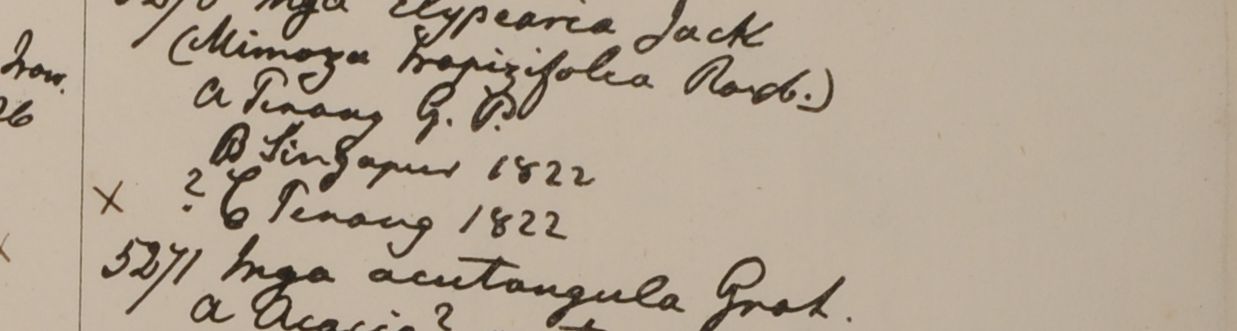 5270 Inga clypearia Jack
(Mimoza trapizifolia Roxb.)
a Penang G. P.
B Singapur 1822
26
x ? C Penang 1822
5271 Inga acutangula Grah.
a Acacia?